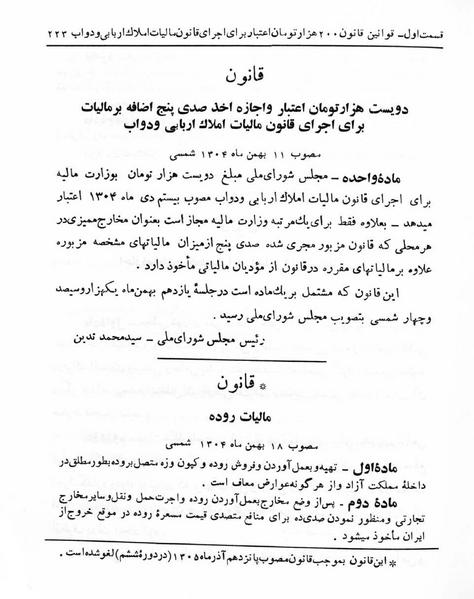 قسمت اول - قوانین قانون ۲۰۰ هزار تومان اعتبار برای اجرای قانون مالیات املاك اربابی و دواب ۲۲۳
قانون
دویست هزار تومان اعتبار واجازه اخذ صدی پنج اضافه بر مالیات
برای اجرای قانون مالیات املاك اربابی ودواب
مصوب ۱۱ بهمن ماه ۱۳۰۴ شمسی
مادهٔ واحده - مجلس شورای ملی مبلغ دویست هزار تومان بوزارت مالیه
برای اجرای قانون مالیات املاك اربابی ودواب مصوب بیستم دی ماه ۱۳۰۴ اعتبار
میدهد - بعلاوه فقط برای یك مرتبه وزارت مالیه مجاز است بعنوان مخارج ممیزی در
هر محلی که قانون مزبور مجری شده صدی پنج از میزان مالیاتهای مشخصه مزبوره
علاوه بر مالیاتهای مقرره در قانون از مؤدیان مالیاتی مأخوذ دارد .
این قانون که مشتمل بریك ماده است در جلسهٔ یازدهم بهمن ماه یکهزار وسیصد
وچهار شمسی بتصویب مجلس شورای ملی رسید .
رئیس مجلس شورای ملی - سید محمد تدین
* قانون
مالیات روده
مصوب ۱۸ بهمن ماه ۱۳۰۴ شمسی
مادهٔ اول - تهیه و بعمل آوردن و فروش روده و کیون وزه متصل بروده بطور مطلق در
داخلهٔ مملکت آزاد واز هر گونه عوارض معاف است .
مادهٔ دوم - پس از وضع مخارج بعمل آوردن روده واجرت حمل ونقل وسایر مخارج
تجارتی ومنظور نمودن صدی ده برای منافع متصدی قیمت مسعرهٔ روده در موقع خروج از
ایران مأخوذ میشود .
* این قانون بموجب قانون مصوب پانزدهم آذر ماه ۱۳۰۵ (در دورهٔ ششم) لغو شده است .